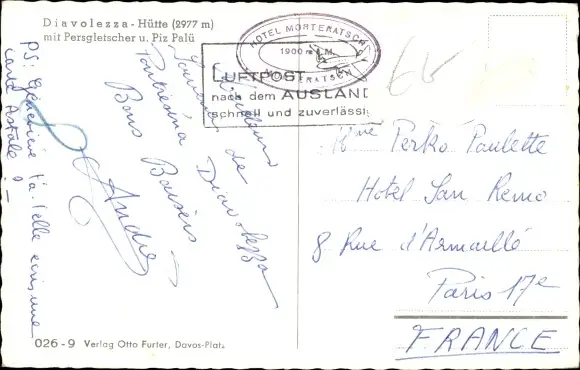 Diavolezza-Hütte (2977 m)
mit Persgletscher u. Piz Palü
HOTEL MORTERATSCH
1900 m
MORTERATSCH
LUFTPOST
nach dem AUSLAND
schnell und zuverlässig
65
Souvenir de Diavolezza
Pontresina
Bons Baisers
André
PS: Geneviève t'a-t-elle écris une
carte
Mme Perko Paulette
Hotel San Remo
8 Rue d'Armaillé
Paris 17e
FRANCE
026-9 Verlag Otto Furter, Davos-Platz